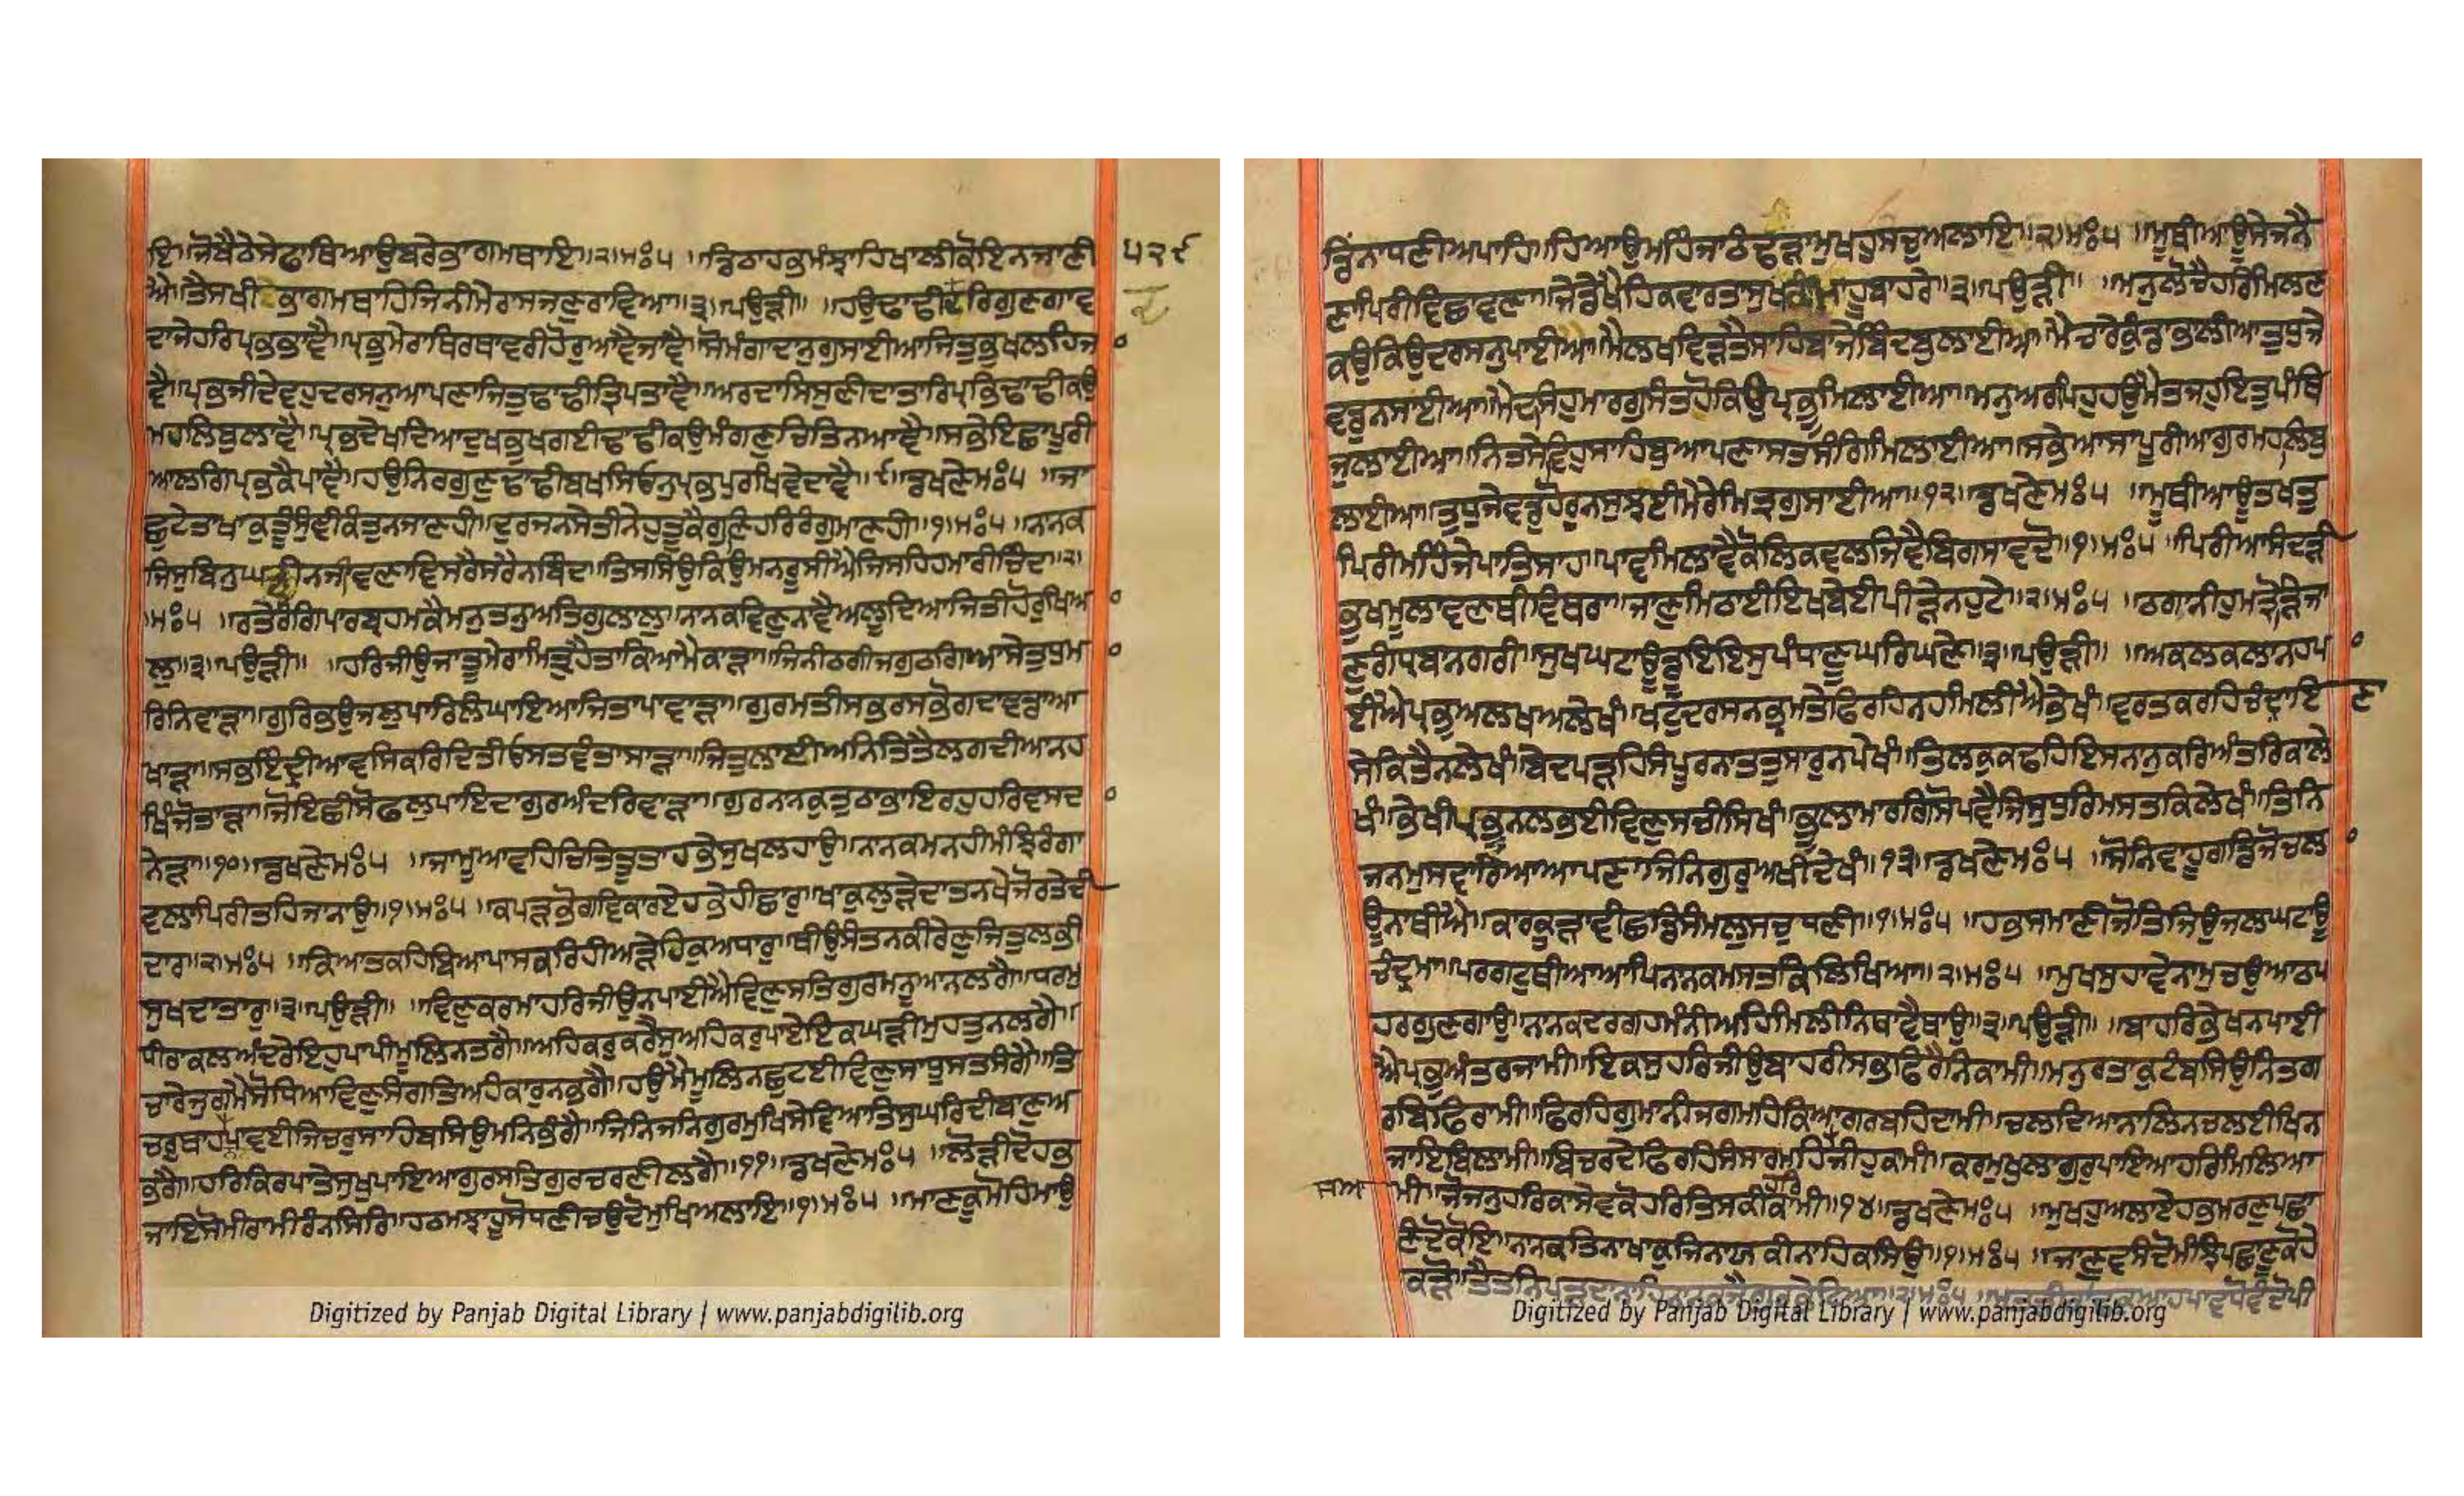 ਇ॥ਜੋਬੈਠੇਸੇਫਾਥਿਆਉਬਰੇਭਾਗਮਥਾਇ॥੨॥ਮਃ੫ ॥ਡਿਠਾਹਭਮੰਝਾਹਿਖਾਲੀਕੋਇਨਜਾਣੀ ੫੨੯
ਐ॥ਤੈਸਖੀਭਾਗਮਥਾਹਿਜਿਨੀਮੇਰਾਸਜਣੁਰਾਵਿਆ॥੩॥ਪਉੜੀ॥ ॥ਹਉਢਾਢੀਦਰਿਗੁਣਗਾਵ
ਦਾਜੇਹਰਿਪ੍ਰਭਭਾਵੈ॥ਪ੍ਰਭੁਮੇਰਾਥਿਰਥਾਵਰੀਹੋਰੁਆਵੈਜਾਵੈ॥ਸੋਮੰਗਾਦਾਨੁਗੁਸਾਈਆਜਿਤੁਭੁਖਲਹਿਜਾ
ਵੈ॥ਪ੍ਰਭਜੀਦੇਵਹੁਦਰਸਨੁਆਪਣਾਜਿਤੁਢਾਢੀਤ੍ਰਿਪਤਾਵੈ॥ਅਰਦਾਸਿਸੁਣੀਦਾਤਾਰਿਪ੍ਰਭਿਢਾਢੀਕਉ
ਮਹਲਿਬੁਲਾਵੈ॥ਪ੍ਰਭਦੇਖਦਿਆਦੁਖਭੁਖਗਈਢਾਢੀਕਉਮੰਗਣੁਚਿਤਿਨਆਵੈ॥ਸਭੇਇਛਾਪੂਰੀ
ਆਲਗਿਪ੍ਰਭਕੈਪਾਵੈ॥ਹਉਨਿਰਗੁਣੁਢਾਢੀਬਖਸਿਓਨੁਪ੍ਰਭਪੁਰਖਿਵੇਦਾਵੈ॥੯॥ਡਖਣੇਮਃ੫ ॥ਜਾ
ਛੁਟੇਤਾਖਾਕੁਤੂੰਸੁੰਞੀਕੰਤੁਨਜਾਣਹੀ॥ਦੁਰਜਨਸੇਤੀਨੇਹੁਤੂਕੈਗੁਣਿਹਰਿਰੰਗੁਮਾਣਹੀ॥੧॥ਮਃ੫ ॥ਨਾਨਕ
ਜਿਸੁਬਿਨੁਘੜੀਨਜੀਵਣਾਵਿਸਰੇਸਰੈਨਬਿੰਦ॥ਤਿਸਸਿਉਕਿਉਮਨਰੂਸੀਐਜਿਸਹਿਹਮਾਰੀਚਿੰਦ॥੨॥
॥ਮਃ੫ ॥ਰਤੇਰੰਗਿਪਾਰਬ੍ਰਹਮਕੈਮਨੁਤਨੁਅਤਿਗੁਲਾਲੁ॥ਨਾਨਕਵਿਣੁਨਾਵੈਆਲੂਦਿਆਜਿਤੀਹੋਰੁਖਿਆ
ਲੁ॥੩॥ਪਉੜੀ॥ ॥ਹਰਿਜੀਉਜਾਤੂਮੇਰਾਮਿਤ੍ਰੁਹੈਤਾਕਿਆਮੈਕਾੜਾ॥ਜਿਨੀਠਗੀਜਗੁਠਗਿਆਸੇਤੁਧੁਮਾ
ਰਿਨਿਵਾੜਾ॥ਗੁਰਿਭਉਜਲੁਪਾਰਿਲੰਘਾਇਆਜਿਤਾਪਾਵਾੜਾ॥ਗੁਰਮਤੀਸਭਰਸਭੋਗਦਾਵਡਾਆ
ਖਾੜਾ॥ਸਭਇੰਦ੍ਰੀਆਵਸਿਕਰਿਦਿਤੀਓਸਤਵੰਤਾਸਾੜਾ॥ਜਿਤੁਲਾਈਅਨਿਤਿਤੈਲਗਦੀਆਨਹ
ਖਿੰਜੋਤਾੜਾ॥ਜੋਇਛੀਸੋਫਲੁਪਾਇਦਾਗੁਰਅੰਦਰਿਵਾੜਾ॥ਗੁਰਨਾਨਕੁਤੁਠਾਭਾਇਰਹੁਹਰਿਵਸਦਾ
ਨੇੜਾ॥੧੦॥ਡਖਣੇਮਃ੫ ॥ਜਾਮੂਆਵਹਿਚਿਤਿਤੂਤਾਹਭੇਸੁਖਲਹਾਉ॥ਨਾਨਕਮਨਹੀਮੰਝਿਰੰਗਾ
ਵਲਾਪਿਰੀਤਹਿਜਾਨਾਉ॥੧॥ਮਃ੫ ॥ਕਪੜਭੋਗਵਿਕਾਰਏਹਭੇਹੀਛਾਰੁ॥ਖਾਕੁਲੁੜੇਦਾਤਨਖੇਜੋਰਤੇਦੀ
ਦਾਰ॥੨॥ਮਃ੫ ॥ਕਿਆਤਕਹਿਬਿਆਪਾਸਕਰਿਹੀਅੜੇਹਿਕੁਅਧਾਰੁ॥ਥੀਉਸੰਤਨਕੀਰੇਣੁਜਿਤੁਲਭੀ
ਸੁਖਦਾਤਾਰੁ॥੩॥ਪਉੜੀ॥ ॥ਵਿਣੁਕਰਮਾਹਰਿਜੀਉਨਪਾਈਐਵਿਣੁਸਤਿਗੁਰਮਨੂਆਨਲਗੈ॥ਧਰਮੁ
ਧੀਰਾਕਲਅੰਦਰੇਇਹੁਪਾਪੀਮੂਲਿਨਤਗੈ॥ਅਹਿਕਰੁਕਰੇਸੁਅਹਿਕਰੁਪਾਏਇਕਘੜੀਮੁਹਤੁਨਲਗੈ॥
ਚਾਰੇਜੁਗਮੈਸੋਧਿਆਵਿਣੁਸੰਗਤਿਅਹੰਕਾਰੁਨਭਗੈ॥ਹਉਮੈਮੂਲਿਨਛੁਟਈਵਿਣੁਸਾਧੂਸਤਸੰਗੈ॥ਤਿ
ਚਰੁਥਾਹਨਪਾਵਈਜਿਚਰੁਸਾਹਿਬਸਿਉਮਨਿਭੰਗੈ॥ਜਿਨਿਜਨਿਗੁਰਮੁਖਿਸੇਵਿਆਤਿਸੁਘਰਿਦੀਬਾਣੁਅ
ਭਗੈ॥ਹਰਿਕਿਰਪਾਤੇਸੁਖੁਪਾਇਆਗੁਰਸਤਿਗੁਰਚਰਣੀਲਗੈ॥੧੧॥ਡਖਣੇਮਃ੫ ॥ਲੋੜੀਦੋਹਭ
ਜਾਇਸੋਮੀਰਾਮੀਰੰਨਸਿਰਿ॥ਹਠਮਝਾਹੂਸੋਧਣੀਚਉਦੋਮੁਖਿਅਲਾਇ॥੧॥ਮਃ੫ ॥ਮਾਣਕੂਮੋਹਿਮਾਉ
ਡਿੰਨਾਧਣੀਅਪਾਹਿ॥ਹਿਆਉਮਹਿੰਜਾਠੰਢੜਾਮੁਖਹੁਸਚੁਅਲਾਇ॥੨॥ਮਃ੫ ॥ਮੂਥੀਆਊਸੇਜਨੈ
ਣਾਪਿਰੀਵਿਛਾਵਣਾ॥ਜੇਡੇਖੈਹਿਕਵਾਰਤਾਸੁਖਕੀਮਾਹੂਬਾਹਰੇ॥੩॥ਪਉੜੀ॥ ॥ਮਨੁਲੋਚੈਹਰਿਮਿਲਣ
ਕਉਕਿਉਦਰਸਨੁਪਾਈਆ॥ਮੈਲਖਵਿੜਤੇਸਾਹਿਬਾਜੇਬਿੰਦਬੁਲਾਈਆ॥ਮੈਚਾਰੇਕੁੰਡਾਭਾਲੀਆਤੁਧੁਜੇ
ਵਡੁਨਸਾਈਆ॥ਮੈਦਸਿਹੁਮਾਰਗੁਸੰਤਹੋਕਿਉਪ੍ਰਭੂਮਿਲਾਈਆ॥ਮਨੁਅਰਪਿਹੁਹਉਮੈਤਜਹੁਇਤੁਪੰਥਿ
ਜੁਲਾਈਆ॥ਨਿਤਸੇਵਿਹੁਸਾਹਿਬੁਆਪਣਾਸਤਸੰਗਿਮਿਲਾਈਆ॥ਸਭੇਆਸਾਪੂਰੀਆਗੁਰਮਹਲਿਬੁ
ਲਾਈਆ॥ਤੁਧੁਜੇਵਡੁਹੋਰੁਨਸੁਝਈਮੇਰੇਮਿਤ੍ਰਗੁਸਾਈਆ॥੧੨॥ਡਖਣੇਮਃ੫ ॥ਮੂਥੀਆਊਤਖਤੁ
ਪਿਰੀਮਹਿੰਜੇਪਾਤਿਸਾਹ॥ਪਾਵਮਿਲਾਵੇਕੋਲਿਕਵਲਜਿਵੈਬਿਗਸਾਵਦੋ॥੧॥ਮਃ੫ ॥ਪਿਰੀਆਸੰਦੜੀ
ਭੁਖਮੂਲਾਵਣਥੀਵਿਥਰਾ॥ਜਾਣੁਮਿਠਾਈਇਖਬੇਈਪੀੜੇਨਹੁਟੇ॥੨॥ਮਃ੫ ॥ਠਗਾਨੀਹੁਮਤ੍ਰੋੜਿਜਾ
ਣੁਗੰਧ੍ਰਬਾਨਗਰੀ॥ਸੁਖਘਟਾਊਡੂਇਇਸੁਪੰਧਾਣੂਘਰਿਘਣੇ॥੩॥ਪਉੜੀ॥ ॥ਅਕਲਕਲਾਨਹਪਾ
ਈਐਪ੍ਰਭੁਅਲਖਅਲੇਖੰ॥ਖਟੁਦਰਸਨਭ੍ਰਮਤੇਫਿਰਹਿਨਹਮਿਲੀਐਭੇਖੰ॥ਵਰਤਕਰਹਿਚੰਦ੍ਰਾਇ ਣਾ
ਸੇਕਿਤੈਨਲੇਖੰ॥ਬੇਦਪੜਹਿਸੰਪੂਰਨਾਤਤੁਸਾਰੁਨਪੇਖੰ॥ਤਿਲਕੁਕਢਹਿਇਸਨਾਨੁਕਰਿਅੰਤਰਿਕਾਲੇ
ਖੰ॥ਭੇਖੀਪ੍ਰਭੂਨਲਭਈਵਿਣੁਸਚੀਸਿਖੰ॥ਭੂਲਾਮਾਰਗਿਸੋਪਵੈਜਿਸੁਧੁਰਿਮਸਤਕਿਲੇਖੰ॥ਤਿਨਿ
ਜਨਮੁਸਵਾਰਿਆਆਪਣਾਜਿਨਿਗੁਰੁਅਖੀਦੇਖੰ॥੧੩॥ਡਖਣੇਮਃ੫ ॥ਸੋਨਿਵਾਹੂਗਡਿਜੋਚਲਾ
ਊਨਥੀਐ॥ਕਾਰਕੂੜਾਵੀਛਡਿਸੰਮਲੁਸਚੁਧਣੀ॥੧॥ਮਃ੫ ॥ਹਭਸਮਾਣੀਜੋਤਿਜਿਉਜਲਘਟਾਊ
ਚੰਦ੍ਰਮਾ॥ਪਰਗਟੁਥੀਆਆਪਿਨਾਨਕਮਸਤਕਿਲਿਖਿਆ॥੨॥ਮਃ੫ ॥ਮੁਖਸੁਹਾਵੇਨਾਮੁਚਉਆਠਪ
ਹਰਗੁਣਗਾਉ॥ਨਾਨਕਦਰਗਹਮੰਨੀਅਹਿਮਿਲੀਨਿਥਾਵੈਥਾਉ॥੩॥ਪਉੜੀ॥ ॥ਬਾਹਰਿਭੇਖਨਪਾਈ
ਐਪ੍ਰਭੁਅੰਤਰਜਾਮੀ॥ਇਕਸੁਹਰਿਜੀਉਬਾਹਰੀਸਭਫਿਰੈਨਿਕਾਮੀ॥ਮਨੁਰਤਾਕੁਟੰਬਸਿਉਨਿਤਗ
ਰਬਿਫਿਰਾਮੀ॥ਫਿਰਹਿਗੁਮਾਨੀਜਗਮਹਿਕਿਆਗਰਬਹਿਦਾਮੀ॥ਚਲਦਿਆਨਾਲਿਨਚਲਈਖਿਨ
ਜਾਇਬਿਲਾਮੀ॥ਬਿਚਰਦੇਫਿਰਹਿਸੰਸਾਰਮਹਿਹਰਿਜੀਹੁਕਾਮੀ॥ਕਰਮੁਖੁਲਾਗੁਰੁਪਾਇਆਹਰਿਮਿਲਿਆ
ਸੁਆ ਮੀ॥ਜੋਜਨੁਹਰਿਕਾਸੇਵਕੋਹਰਿਤਿਸਕੀਕਾਮੀ॥੧੪॥ਡਖਣੇਮਃ੫ ॥ਮੁਖਹੁਅਲਾਏਹਭਮਰਣੁਪਛਾ
ਣੰਦੋਕੋਇ॥ਨਾਨਕਤਿਨਾਖਾਕੁਜਿਨਾਯਕੀਨਾਹਿਕਸਿਉ॥੧॥ਮਃ੫ ॥ਜਾਣੁਵਸੰਦੋਮੰਝਿਪਛਾਣੂਕੋਹੇ
ਕੜੋ॥ਤੈਤਨਿਪੜਦਾਨਾਹਿਨਾਨਕਜੈਗੁਰੁਭੇਟਿਆ॥੨॥ਮਃ੫
Digitized by Panjab Digital Library | www.panjabdigilib.org
Digitized by Panjab Digital Library | www.panjabdigilib.org